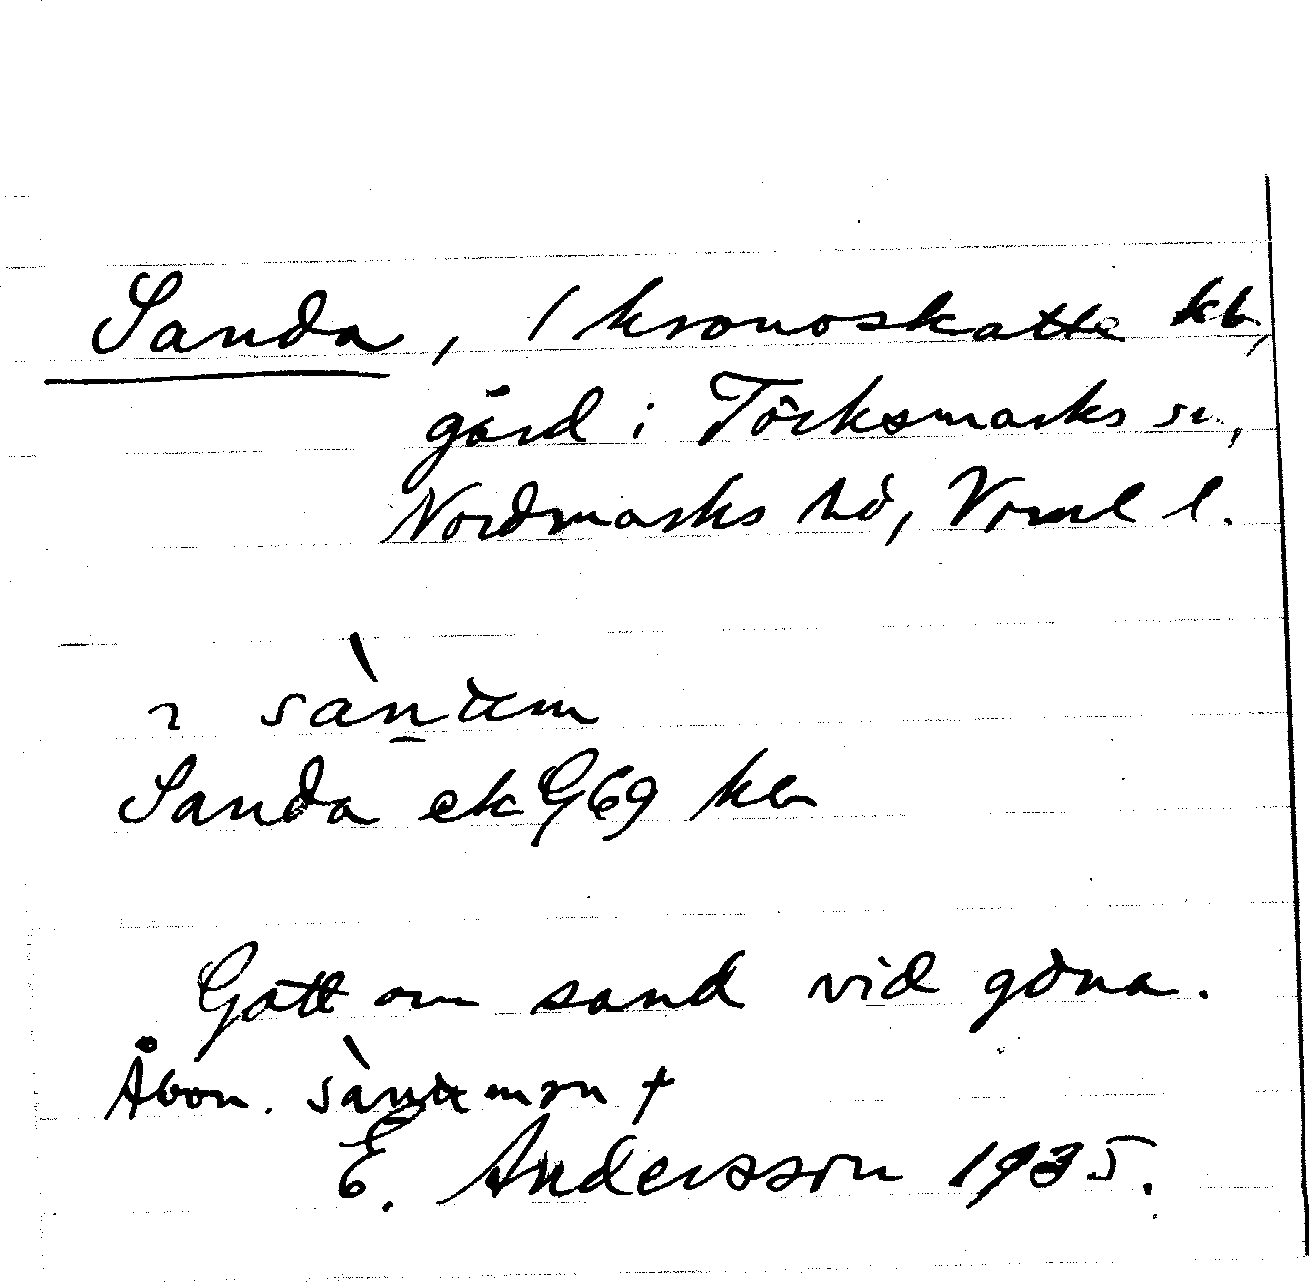 Sanda, 1 kronoskatte
gård i Töcksmarks sn.,
Nordmarks hd, Vrml l.
Sanda ek G69
Gott om sand vid gdna.
Åbon.
E. Andersson 1935.